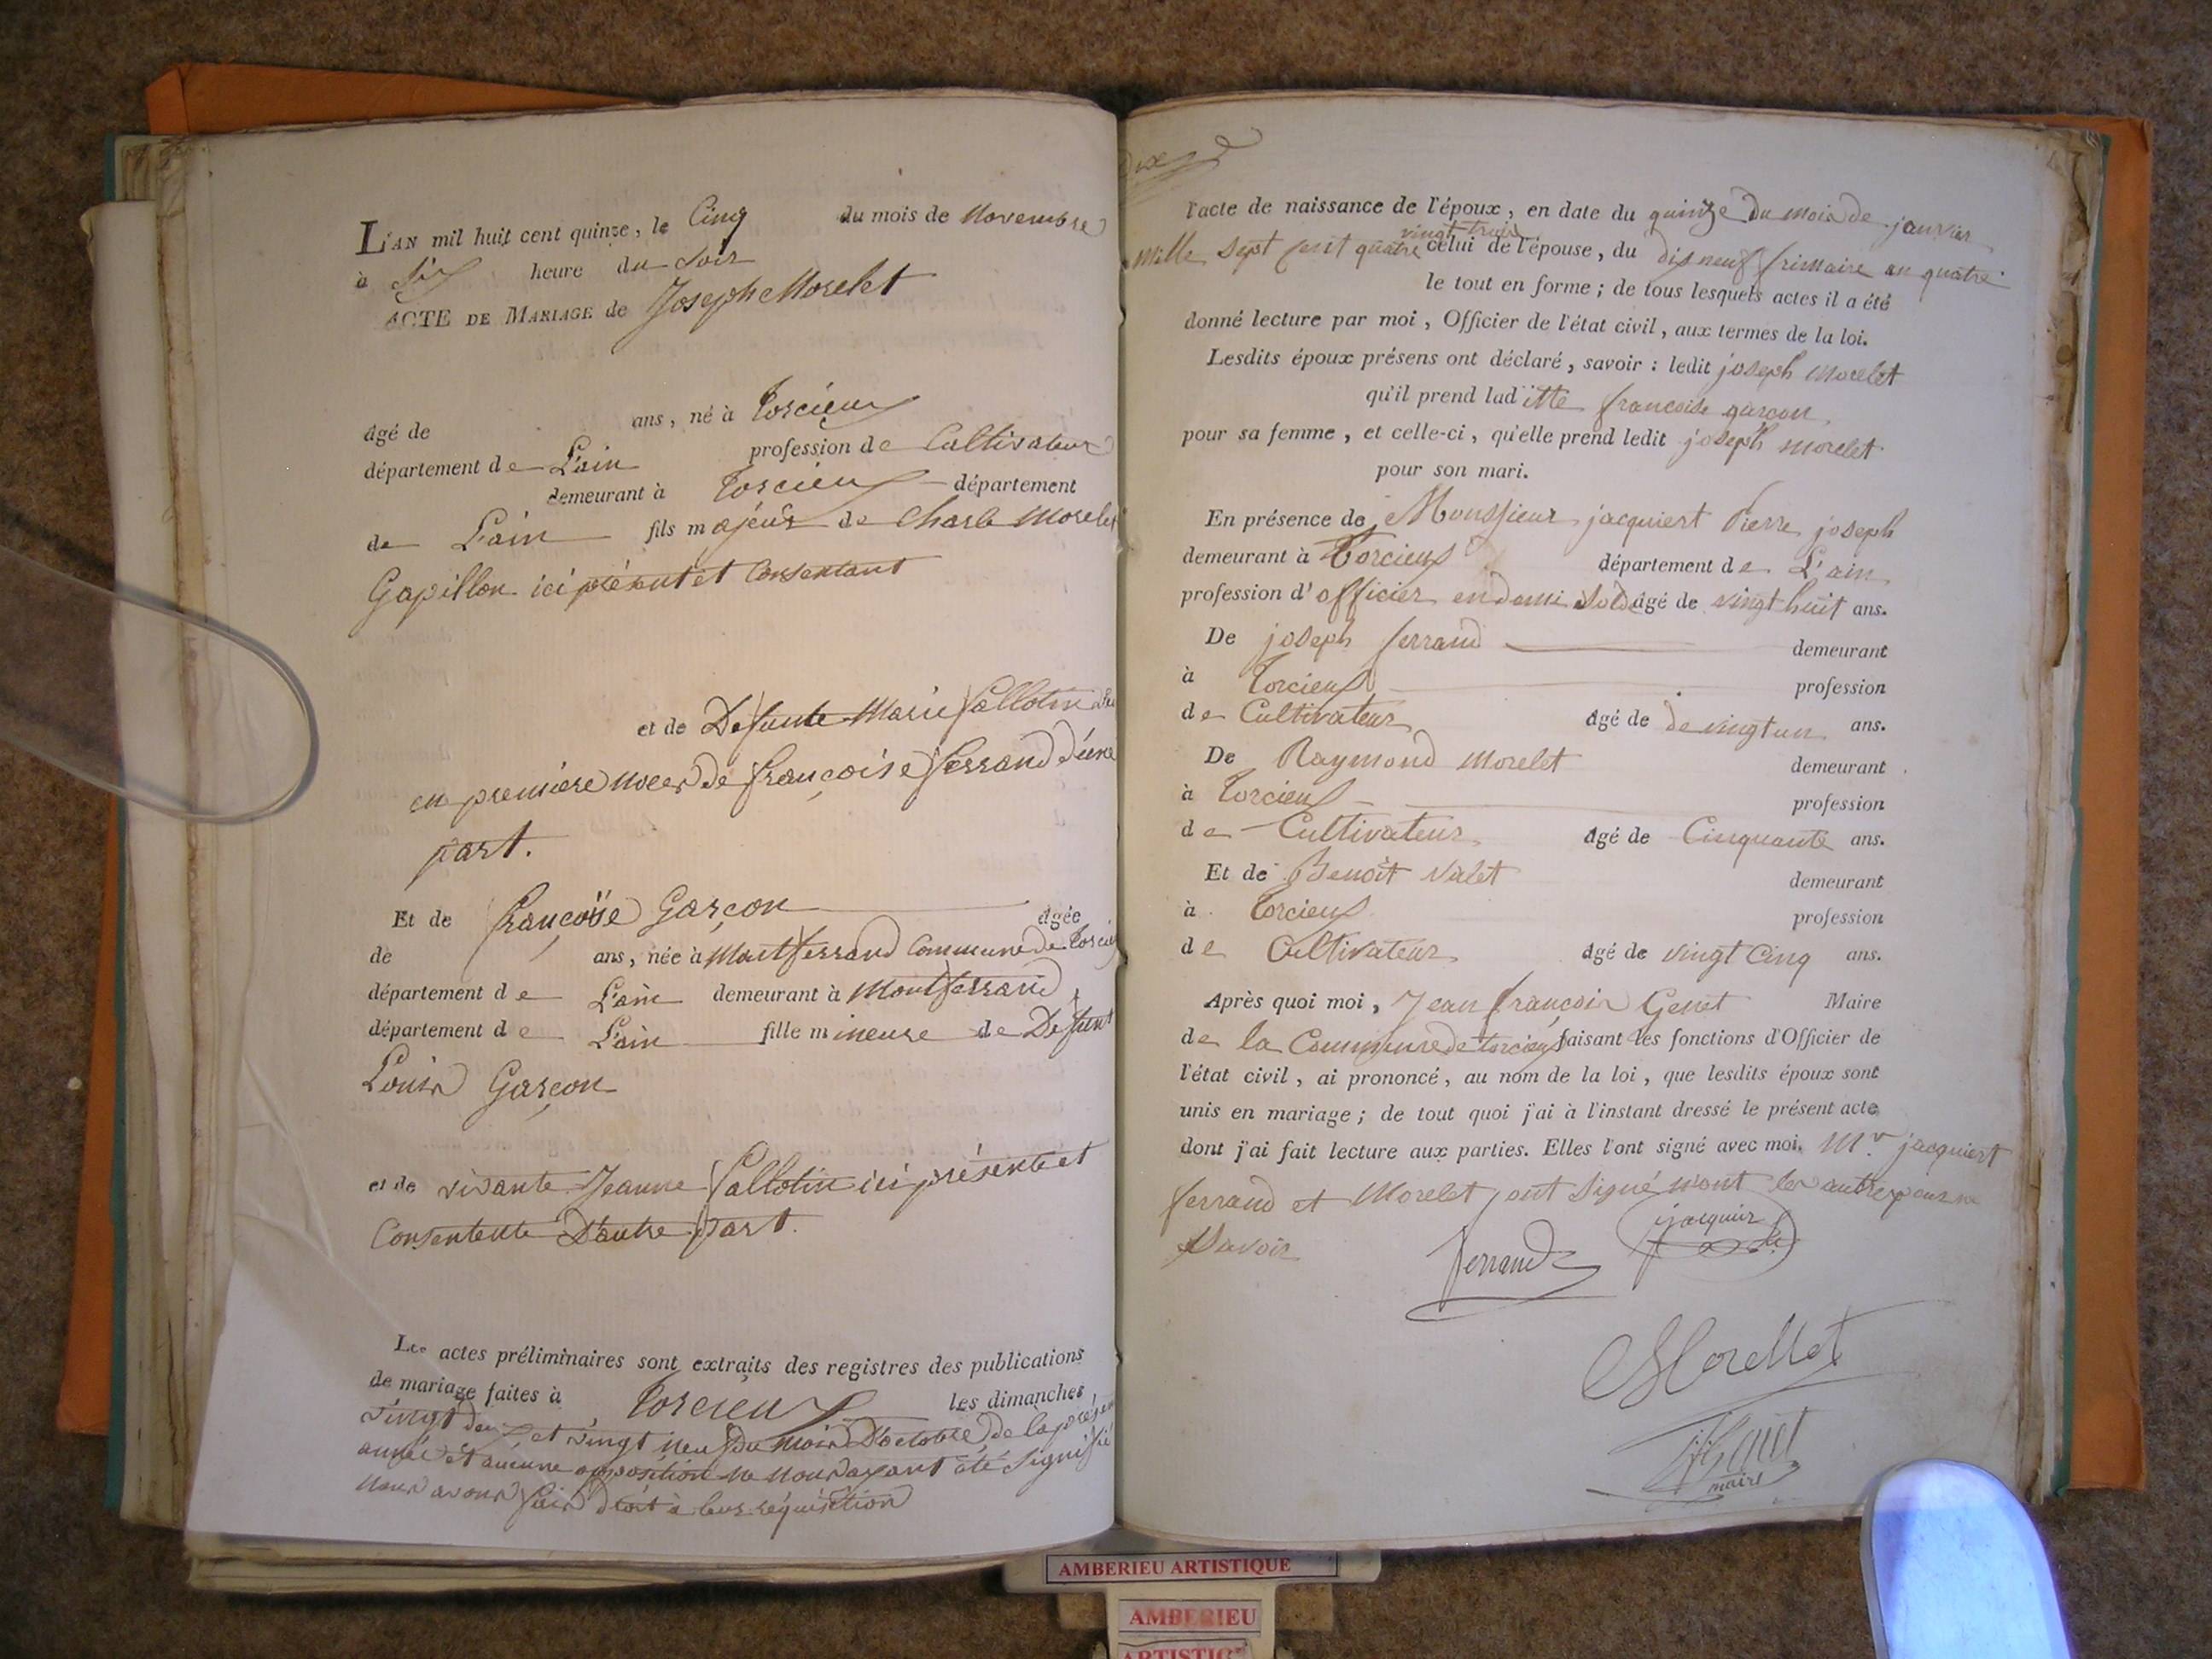 L'AN mil huit cent quinze, le Cinq du mois de Novembre
à Six heure du Soir
ACTE DE MARIAGE de Joseph Morelet
âgé de ans, né à Torcieux
département de L'ain profession de Cultivateur
demeurant à Torcieux département
de L'ain fils majeur de Charle Morelet
Gapillon ici présent et Consentant
et de Defunte Marie fallotin
en premiere Noces de françoise ferrand d'une
part.
Et de françoise Garçon agée
de ans, née à Montferrand Commune de Torcieu
département de L'ain demeurant à Montferrand
département de L'ain fille mineuse de Defunt
Louis Garçon
et de vivante Jeanne fallotin ici présente et
Consentente D'autre part.
Les actes préliminaires sont extraits des registres des publications
de mariage faites à Torcieux les dimanches
vingt deux et vingt neuf du mois D'octobre de la présen
année et aucune opposition ne nous ayant été signifié
nous avons fait droit à leur réquisition
l'acte de naissance de l'époux, en date du quinze du mois de janvier
vingt trois
mille sept cent quatre celui de l'épouse, du dis neuf frimaire an quatre
le tout en forme; de tous lesquels actes il a été
donné lecture par moi, Officier de l'état civil, aux termes de la loi.
Lesdits époux présens ont déclaré, savoir: ledit joseph Morelet
qu'il prend laditte francoise garcon
pour sa femme, et celle-ci, qu'elle prend ledit joseph morelet
pour son mari.
En présence de Monssieur jacquiert Pierre joseph
demeurant à Torcieux département de L'ain
profession d'officier en demi Solde âgé de vingt huit ans.
De joseph ferrand demeurant
à Torcieux profession
de Cultivateur âgé de de vingt un ans.
De Raymond Morelet demeurant
à Torcieux profession
de Cultivateur âgé de Cinquante ans.
Et de Benoit Valet demeurant
à Torcieux profession
de Cultivateur âgé de vingt Cinq ans.
Après quoi moi, Jean françois Genet Maire
de la Commune de torcieux faisant les fonctions d'Officier de
l'état civil, ai prononcé, au nom de la loi, que lesdits époux sont
unis en mariage; de tout quoi j'ai à l'instant dressé le présent acte
dont j'ai fait lecture aux parties. Elles l'ont signé avec moi. Mr. jacquiert
ferrand et Morelet ont signé non't les autres pour ne
Savoir
jacquier
ferrand
Morellet
maire
AMBERIEU ARTISTIQUE
AMBERIEU